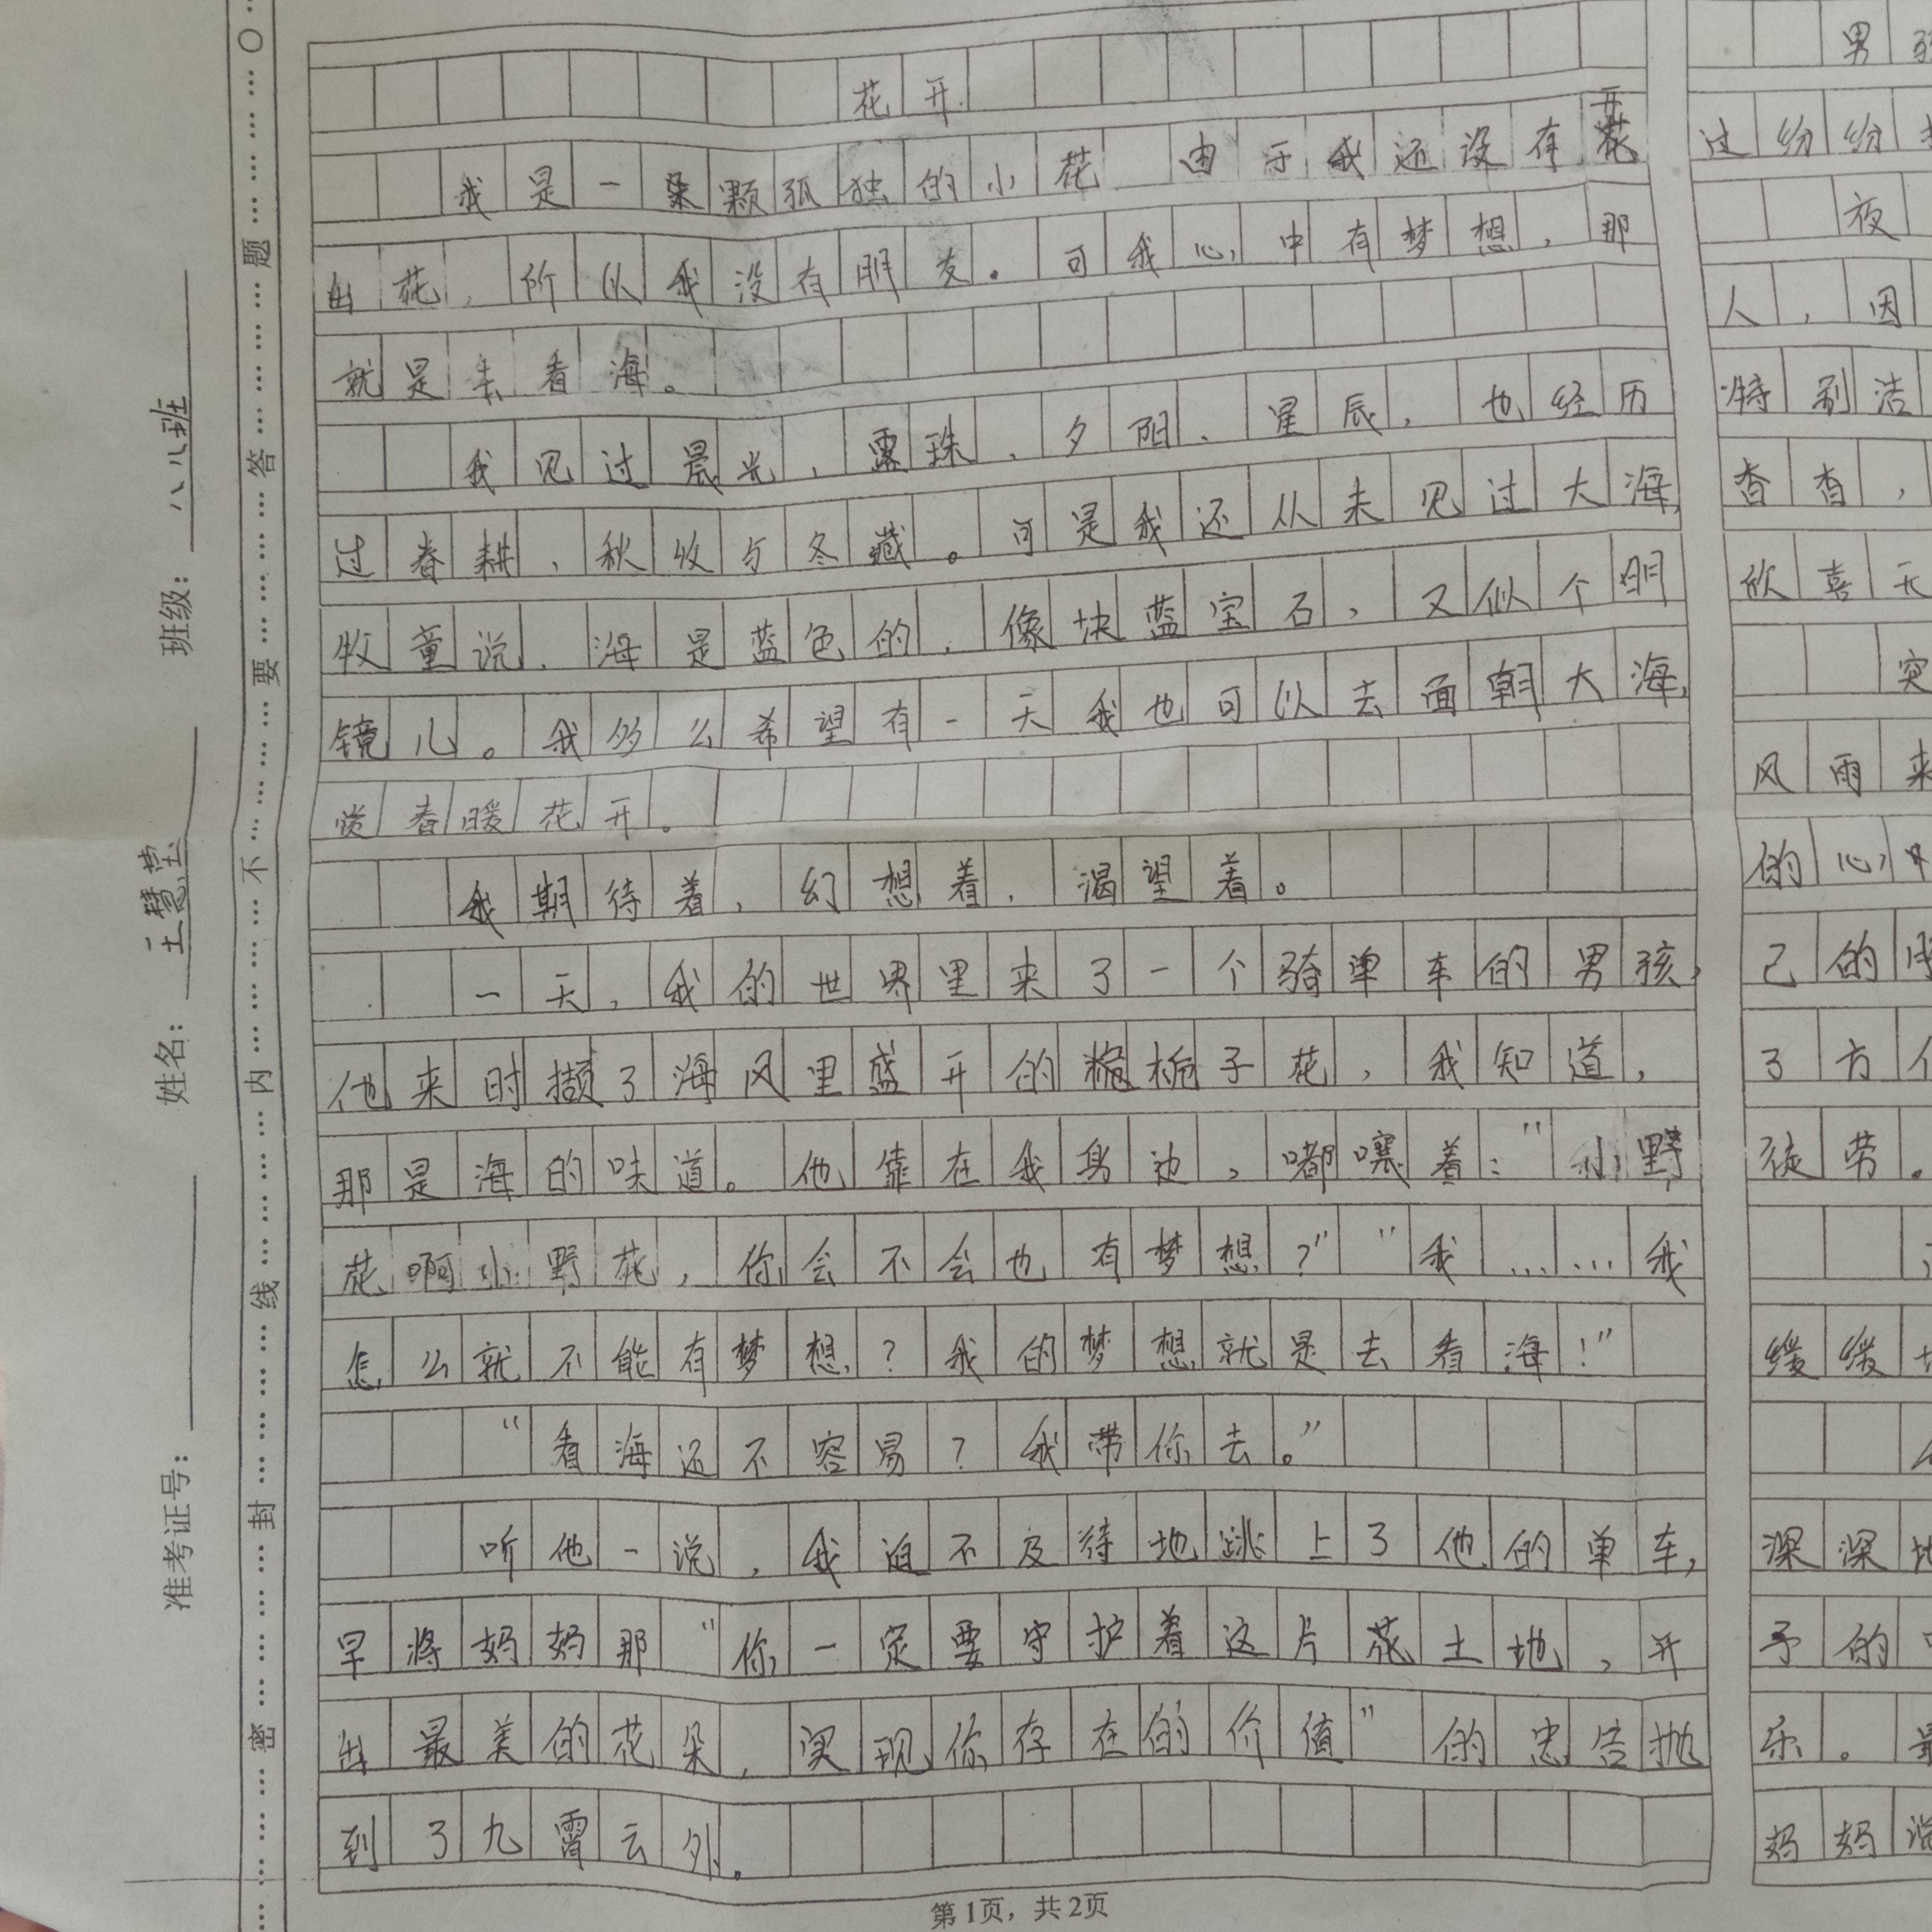 花开
我是一颗孤独的小花 由于我还没有开
出花，所以我没有朋友。可我心中有梦想，那
就是去看海。
我见过晨光，露珠，夕阳、星辰，也经历
过春耕，秋收与冬藏。可是我还从未见过大海，
牧童说，海是蓝色的，像块蓝宝石，又似个明
镜儿。我多么希望有一天我也可以去面朝大海，
赏春暖花开。
我期待着，幻想着，渴望着。
一天，我的世界里来了一个骑单车的男孩，
他来时撷了海风里盛开的栀子花，我知道，
那是海的味道。他靠在我身边，嘟嚷着："小野
花啊小野花，你会不会也有梦想？""我……我
怎么就不能有梦想？我的梦想就是去看海！"
"看海还不容易？我带你去。"
听他一说，我迫不及待地跳上了他的单车，
早将妈妈那"你一定要守护着这片花土地，开
出最美的花朵，实现你存在的价值"的忠告抛
到了九霄云外。
第1页，共2页
男骑
过纷纷
夜
人，因
特别洁
杳杳，
欣喜无
突
风雨来
的心中
己的
了方
徒劳。
缓缓地
深深地
予的
乐。最
妈妈说
班级：八八班
姓名：王慧莹
准考证号：
密封线内不要答题